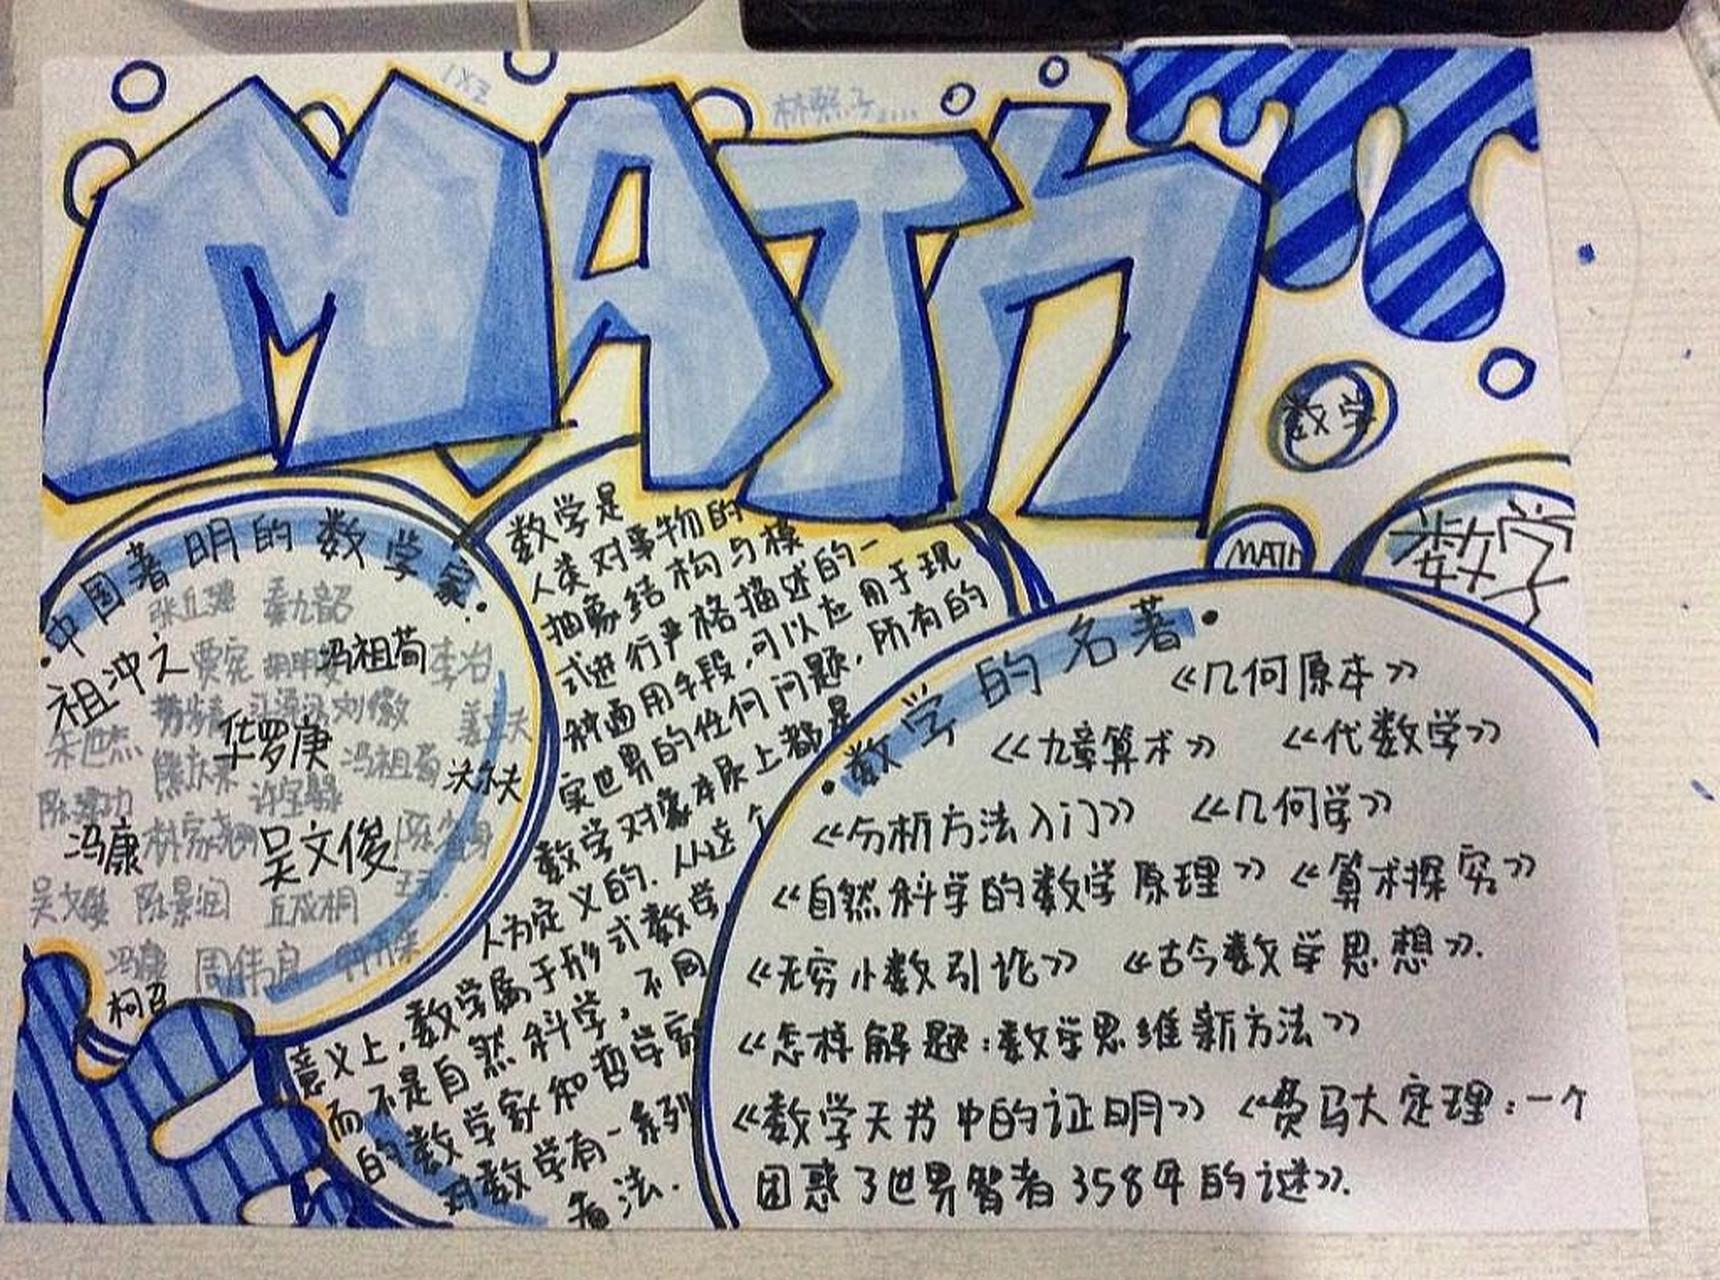 1×2
MATH
数学
数学
MATH
·中国著明的数学家·
张丘建 秦九韶
祖冲之 贾宪 冯祖荀 李冶
刘徽
朱世杰 华罗庚 姜立夫
熊庆来 冯祖荀
许宝騄
冯康 林家翘 吴文俊 陈省身
吴文俊 陈景润 丘成桐 王元
冯康 周伟良
柯召
数学是
人类对事物的
抽象结构与模
式进行严格描述的一
种通用手段,可以应用于现
实世界的任何问题,所有的
数学对象本质上都是
人为定义的.从这个
意义上,数学属于形式数学
而不是自然科学,不同
的数学家和哲学家
对数学有一系列
看法.
·数学的名著·
《几何原本》
《九章算术》 《代数学》
《分析方法入门》 《几何学》
《自然科学的数学原理》 《算术探究》
《无穷小数引论》 《古今数学思想》.
《怎样解题:数学思维新方法》
《数学天书中的证明》 《费马大定理:一个
困惑了世界智者358年的谜》.